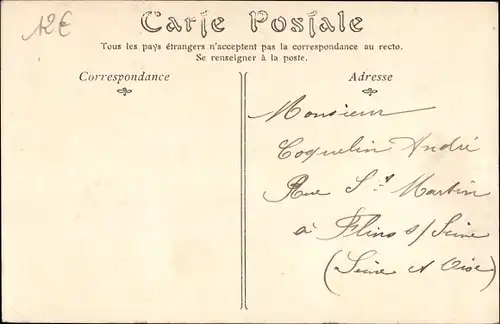 12€
Carte Postale
Tous les pays étrangers n'acceptent pas la correspondance au recto.
Se renseigner à la poste.
Correspondance
Adresse
Monsieur
Coquelin André
Rue St Martin
à Flins s/ Seine
(Seine et Oise)